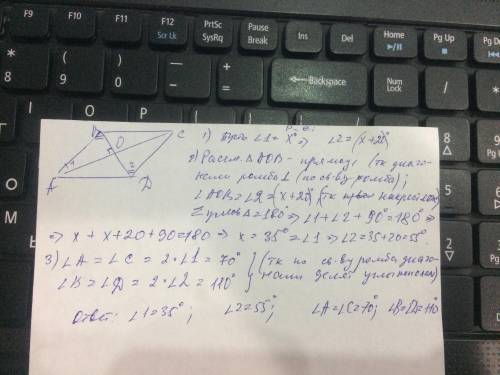 F9
F10
F11
F12
Scr Lk
PrtSc
SysRq
Pause
Break
Ins
Del
Home
Pg Up
Pg Dn
* 8
( 9
) 0
— -
+ =
Backspace
Num
Lock
/
B C
O
A D
1) Пусть ∠1 = x° ⇒ ∠2 = (x+20°)
2) Рассм. △AOB - прямоуг. (тк диаго-
нали ромба ⊥ (по св-ву ромба);
= ∠2 = (x+20°)
Σ углов △ = 180° ⇒ ∠1 + ∠2 + 90° = 180° ⇒
⇒ x + x + 20 + 90 = 180 ⇒ x = 35° = ∠1 ⇒ ∠2 = 35+20 = 55°.
3) ∠A = ∠C = 2·∠1 = 70° } (тк по св-ву ромба диаго-
∠B = ∠D = 2·∠2 = 110° } нали делят углы пополам)
Ответ: ∠1 = 35°; ∠2 = 55°; ∠A = ∠C = 70°; ∠B = D = 110°